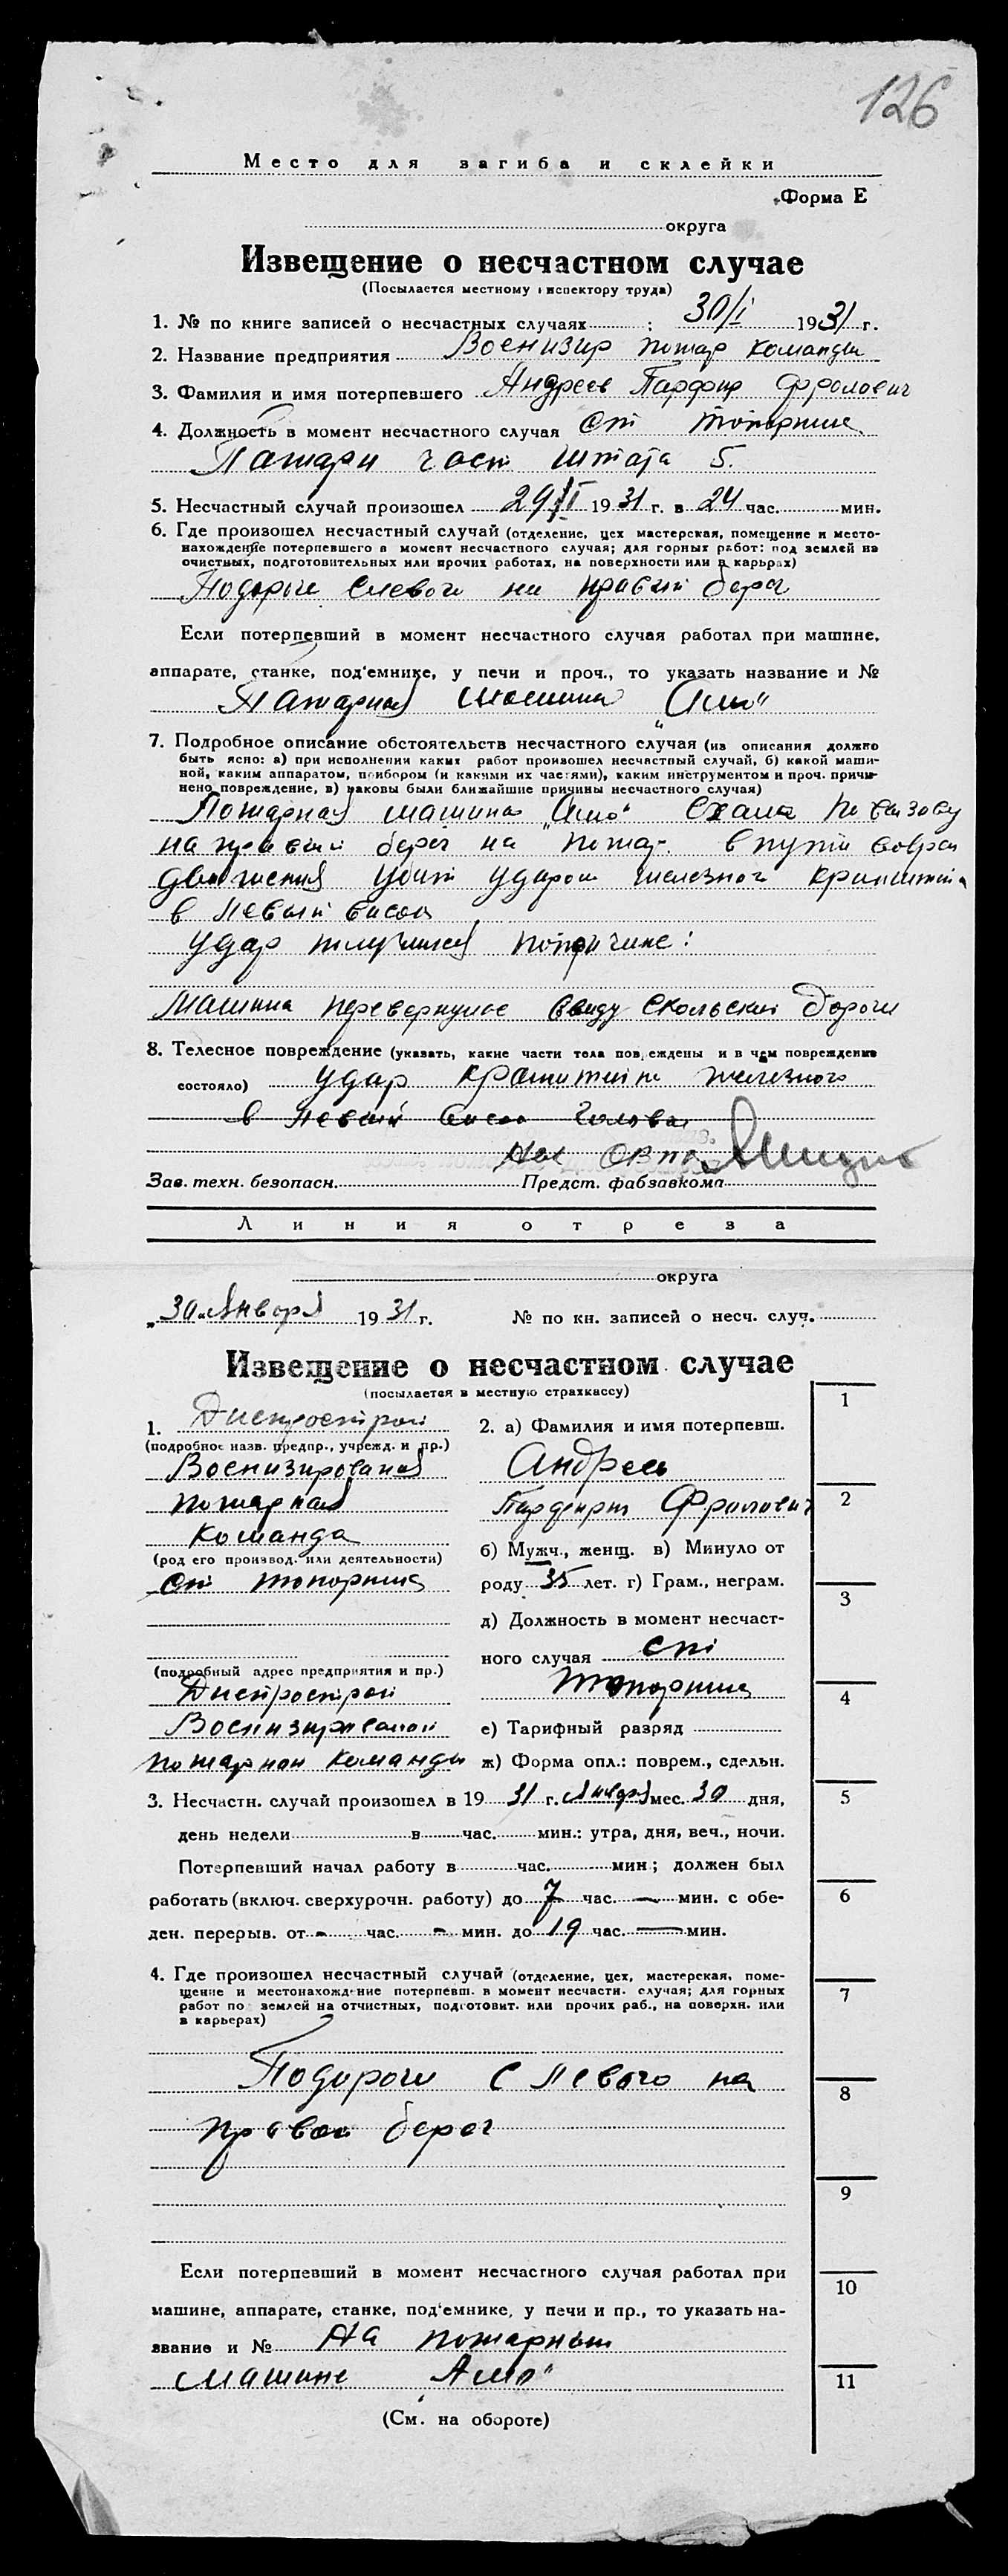 126
Место для загиба и склейки
Форма Е
округа
Извещение о несчастном случае
(Посылается местному инспектору труда)
1. № по книге записей о несчастных случаях : 30/I 1931 г.
2. Название предприятия Военизир пожар команды
3. Фамилия и имя потерпевшего Андреев Парфир Фролович
4. Должность в момент несчастного случая Ст топорник
Пожарн част штата 5.
5. Несчастный случай произошел 29/I 1931 г. в 24 час. мин.
6. Где произошел несчастный случай (отделение, цех мастерская, помещение и место-
нахождение потерпевшего в момент несчастного случая; для горных работ: под землей на
очистных, подготовительных или прочих работах, на поверхности или в карьрах)
Подороги слевого на правый берег
Если потерпевший в момент несчастного случая работал при машине,
аппарате, станке, под'емнике, у печи и проч., то указать название и №
Пажарная машина „Амо"
7. Подробное описание обстоятельств несчастного случая (из описания должно
быть ясно: а) при исполнении каких работ произошел несчастный случай, б) какой маши-
ной, каким аппаратом, прибором (и какими их частями), каким инструментом и проч. причи-
нено повреждение, в) каковы были ближайшие причины несчастного случая)
Пожарная машина „Амо" ехала по вызову
на правый берег на пожар. в пути вовремя
движения убит ударом железного кранштина
в левый висок
удар получился попричине:
Машина перевернулась ввиду скользкий дороги
8. Телесное повреждение (указать, какие части тела повреждены и в чем повреждение
состояло) удар железного
в левый висок головы
Нач ОВПО
Зав. техн. безопасн. Предст. фабзавкома
Линия отреза
округа
„30" Января 1931 г. № по кн. записей о несч. случ.
Извещение о несчастном случае
(посылается в местную страхкассу)
1. Днепрострой
(подробное назв. предпр., учрежд. и пр.)
Военизированая
пожарная
команда
(род его производ. или деятельности)
Ст топорник
(подробный адрес предприятия и пр.)
Днепрострой
Военизированой
пожарной команды
2. а) Фамилия и имя потерпевш.
Андреев
Фролович
б) Мужч., женщ. в) Минуло от
роду 35 лет. г) Грам., неграм.
д) Должность в момент несчаст-
ного случая Ст
топорник
е) Тарифный разряд
ж) Форма опл.: поврем., сдельн.
3. Несчастн. случай произошел в 1931 г. Января мес. 30 дня,
день недели в час. мин.: утра, дня, веч., ночи.
Потерпевший начал работу в час. мин.; должен был
работать (включ. сверхурочн. работу) до 7 час. — мин. с обе-
ден. перерыв. от - час. - мин. до 19 час. — мин.
4. Где произошел несчастный случай (отделение, цех, мастерская, поме-
щение и местонахождение потерпевш. в момент несчастн. случая; для горных
работ по землей на отчистных, подготовит. или прочих раб., на поверхн. или
в карьерах)
Подороги с левого на
правой берег
Если потерпевший в момент несчастного случая работал при
машине, аппарате, станке, под'емнике, у печи и пр., то указать на-
звание и № На пожарным
машине „Амо"
(См. на обороте)
1
2
3
4
5
6
7
8
9
10
11